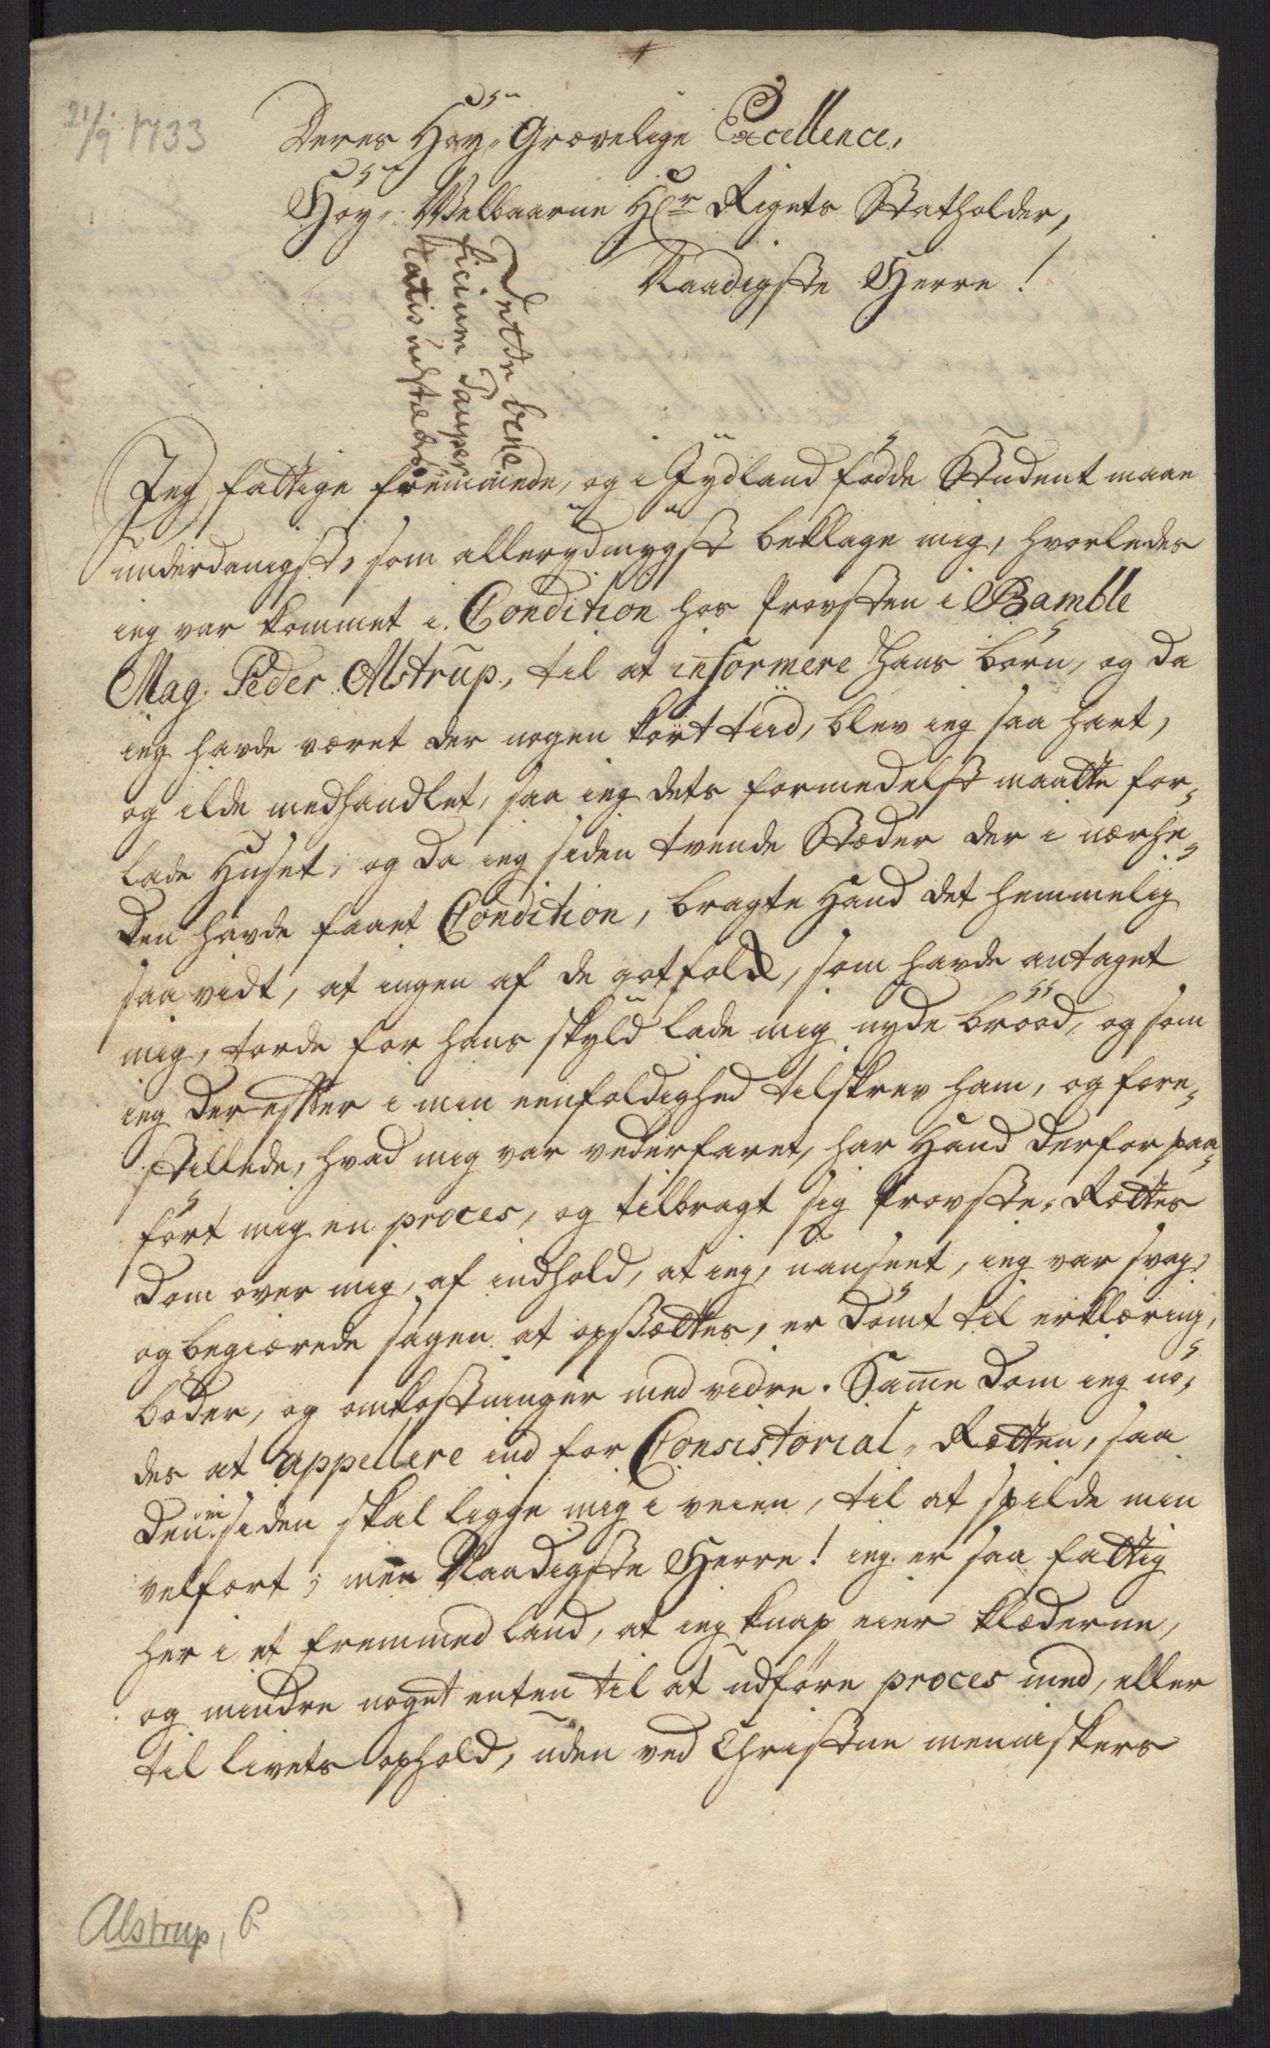 21/9 1733
Deres Høy-Grævelige Excellence,
Høy-Welbaarne Hr Rigets Statholder,
Naadigste Herre!
Dette bene
ficium Pauper
tatis udstædes
Jeg fattige fremmede, og i Jydland fødde Student maae
underdanigst, som allerydmygst beklage mig, hvorledes
ieg var kommet i Condition hos Provsten i Bamble
Mag. Peder Alstrup, til at informere Hans børn, og da
ieg havde været der nogen kort tiid, blev ieg saa hart,
og ilde medhandlet, saa ieg dets formedelst maatte for-
lade Huset, og da ieg siden tvende Stæder der i nærhe-
den havde faaet Condition, bragte Hand det hemmelig
saa vidt, at ingen af de gotfolk, som havde antaget
mig, torde for hans skyld lade mig nyde brood, og som
ieg derefter i min eenfoldighed tilskrev ham, og fore-
stillede, hvad mig var vederfaret, har Hand derfor paa-
ført mig en proces, og tilbragt sig Provste-Rættes
Dom over mig, af indhold, at ieg, uanseet, ieg var svag,
og begiærede sagen at opsættes, er dømt til erklæring,
bøder, og omkostninger med vidre. Same Dom ieg nø-
des at appellere ind for Consistorial-Rætten, saa
den ei siden skal ligge mig i veien, til at spilde min
velfært; men Naadigste Herre! ieg er saa fattig
her i et fremmed land, at ieg knap eier klæderne,
og mindre noget enten til at udføre proces med, eller
til livets ophold, uden ved Christne menniskers
Alstrup, P.